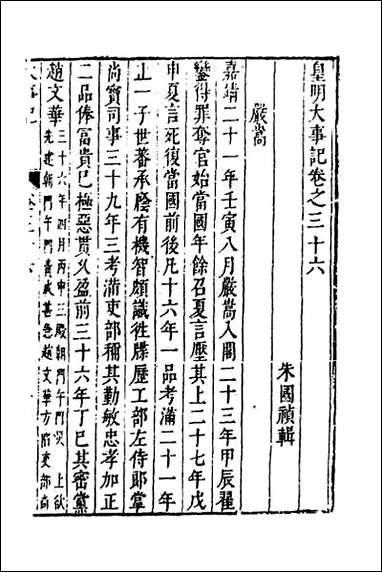 皇明大事記卷之三十六
朱國禎輯
嚴嵩
嘉靖二十一年壬寅八月嚴嵩入閣二十三年甲辰翟
鑾得罪奪官始當國年餘召夏言壓其上二十七年戊
申夏言死復當國前後凡十六年一品考滿二十一年
止一子世蕃承廕有機智頗識徃牒歷工部左侍郎掌
尚寶司事三十九年三考滿吏部稱其勤敏忠孝加正
二品俸富貴已極惡貫乂盈前三十六年丁巳其密黨
趙文華三十六年四月丙申三殿朝門午門災上欲
先建朝門午門責成甚急趙文華方陞吏部尚